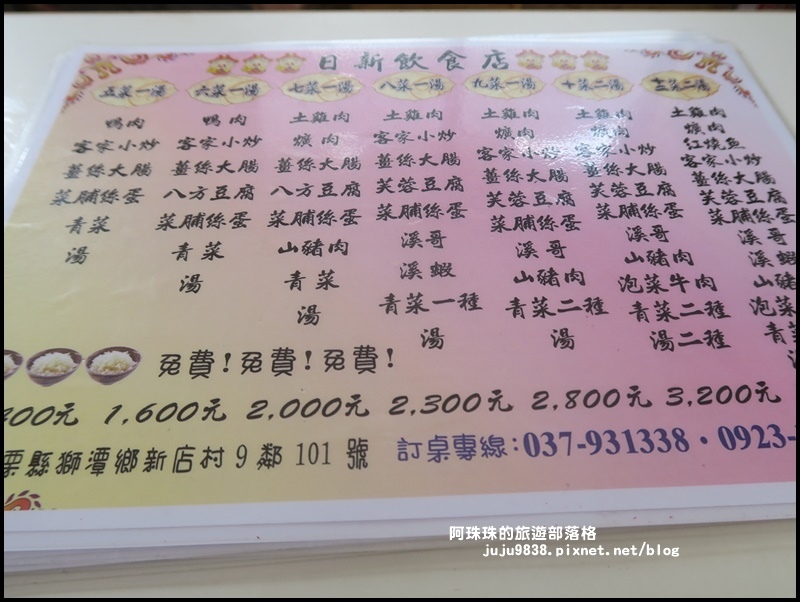 日新飲食店
五菜一湯 六菜一湯 七菜一湯 八菜一湯 九菜一湯 十菜二湯
鴨肉
客家小炒
薑絲大腸
菜脯絲蛋
青菜
湯
鴨肉
客家小炒
薑絲大腸
八方豆腐
菜脯絲蛋
青菜
湯
土雞肉
爌肉
客家小炒
薑絲大腸
八方豆腐
菜脯絲蛋
山豬肉
青菜
湯
土雞肉
客家小炒
薑絲大腸
芙蓉豆腐
菜脯絲蛋
溪哥
溪蝦
青菜一種
湯
土雞肉
爌肉
客家小炒
薑絲大腸
芙蓉豆腐
菜脯絲蛋
溪哥
山豬肉
青菜二種
湯
土雞肉
爌肉
客家小炒
薑絲大腸
芙蓉豆腐
菜脯絲蛋
溪哥
山豬肉
泡菜牛肉
青菜二種
湯二種
土雞肉
爌肉
紅燒魚
客家小炒
薑絲大腸
芙蓉豆腐
菜脯絲蛋
溪哥
溪蝦
山豬
泡菜
青
免費!免費!免費!
00元 1,600元 2,000元 2,300元 2,800元 3,200元
栗縣獅潭鄉新店村9鄰101號 訂桌專線:037-931338・0923-
阿珠珠的旅遊部落格
juju9838.pixnet.net/blog